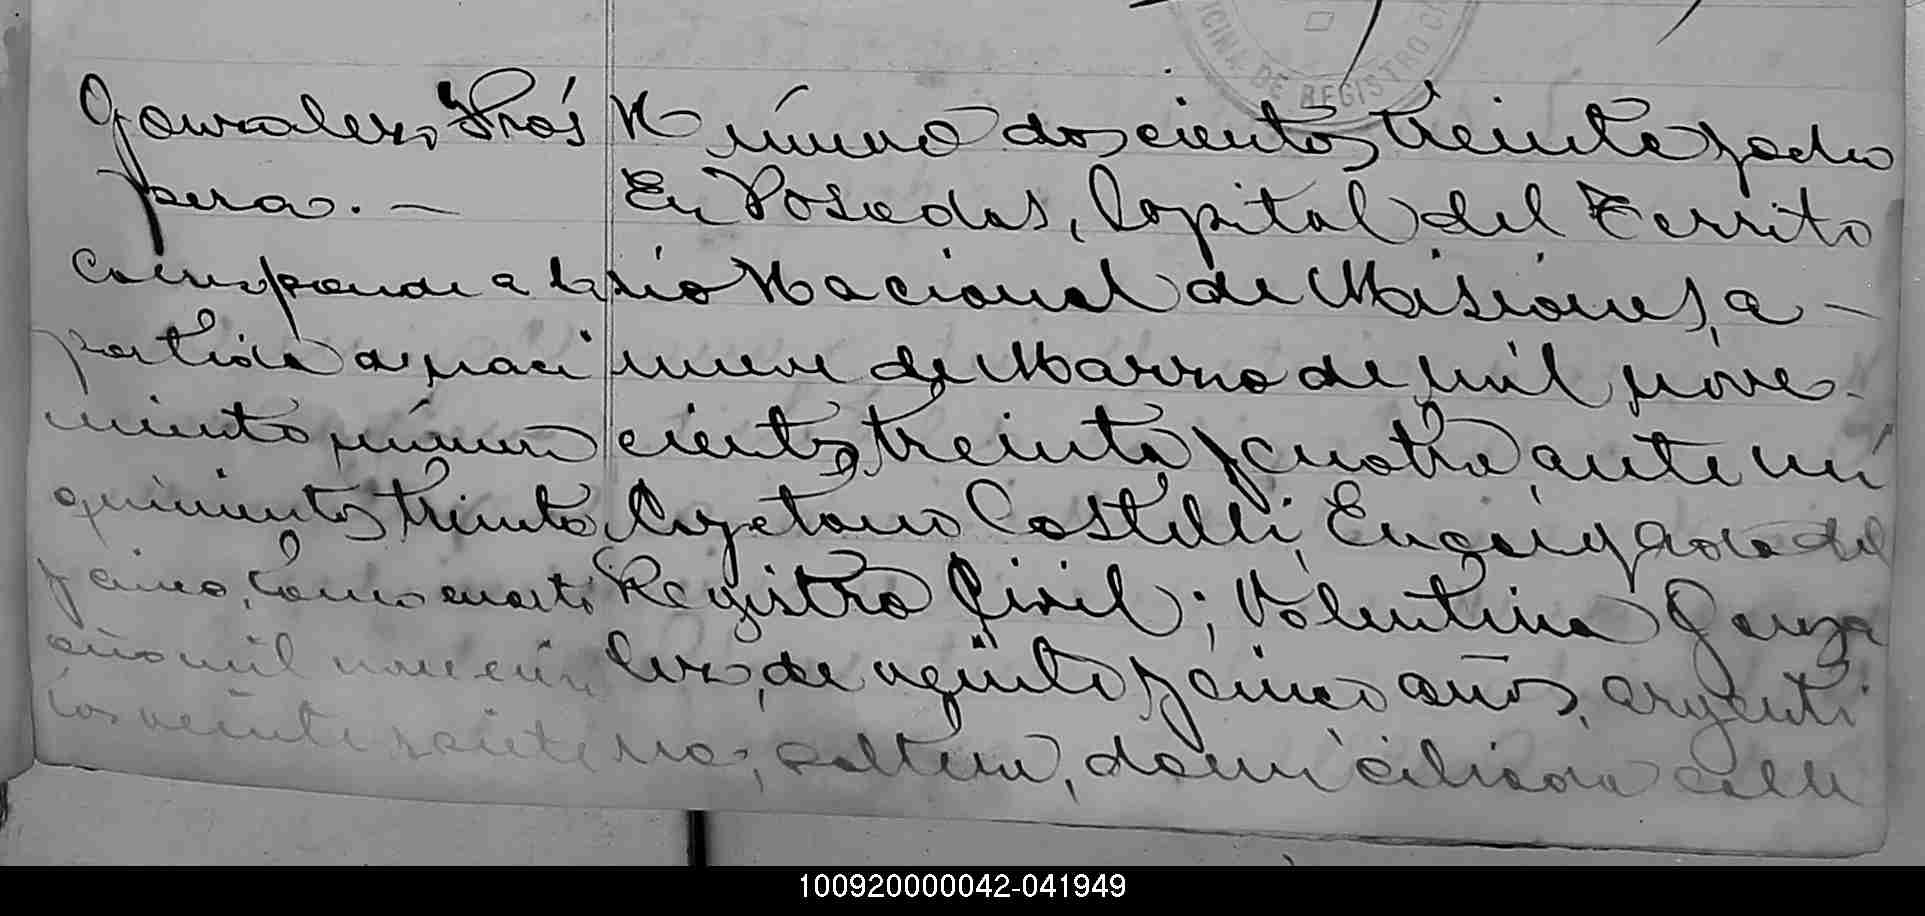 OFICINA DE REGISTRO CI
Gonzalez, Prós
pera. —
Corresponde a la
partida de naci
miento número
quinientos treinta
y cinco, tomo cuarto
año mil novecien
tos veinte y siete
Número doscientos treinta y ocho
En Posadas, Capital del Territo
rio Nacional de Misiones, a —
nueve de Marzo de mil nove-
cientos treinta y cuatro, ante mí
Cayetano Castelli, Encargado del
Registro Civil; Valentina Gonza
lez, de veinte y cinco años, argenti
na; soltera, domiciliada calle
100920000042-041949